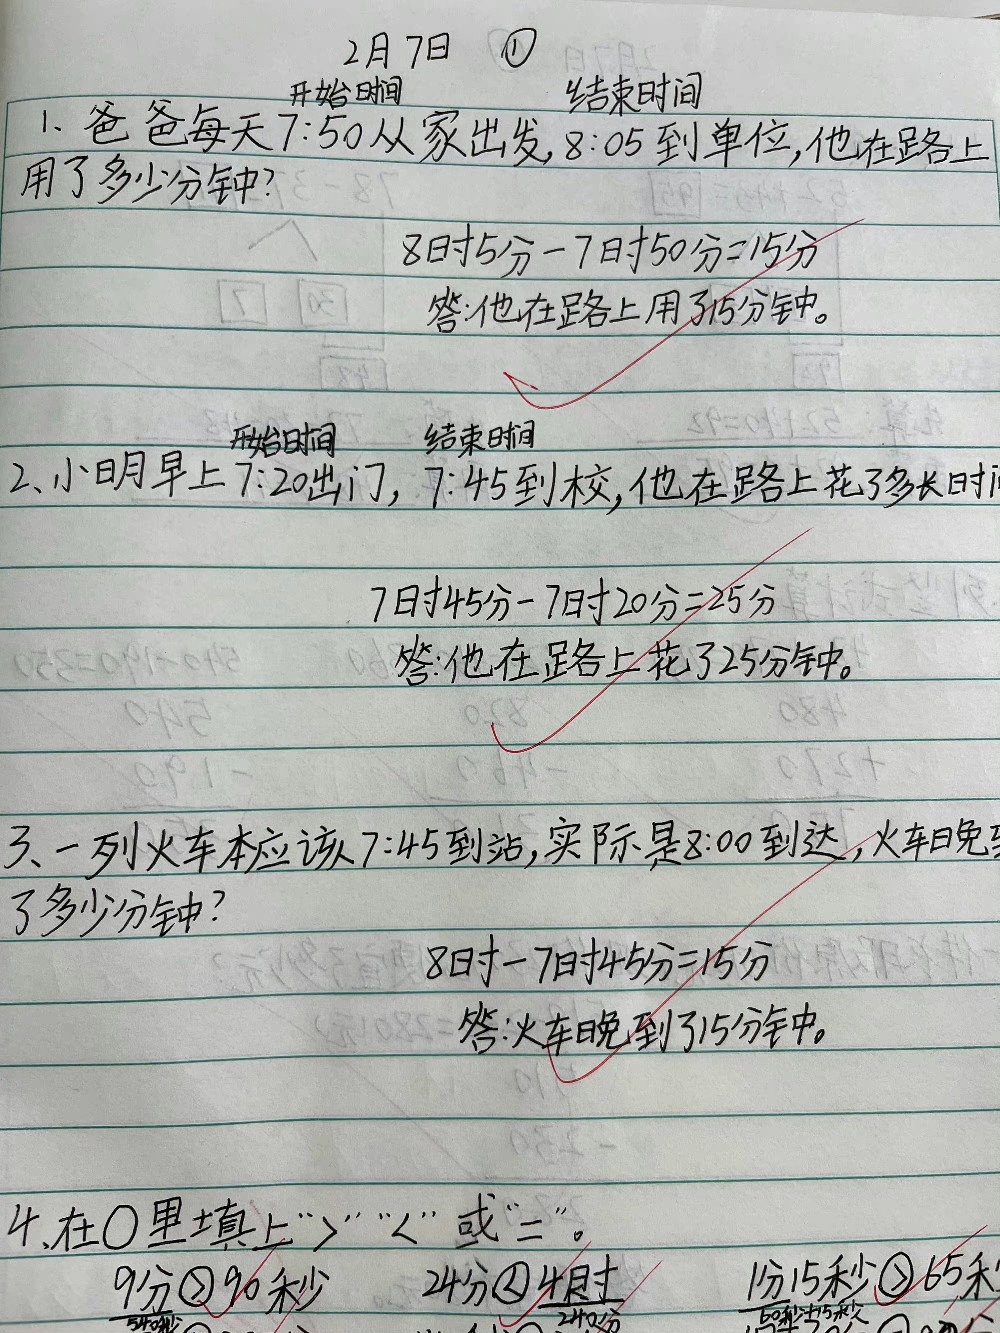 2月7日 ①
开始时间 结束时间
1、爸爸每天7:50从家出发,8:05到单位,他在路上
用了多少分钟?
8时5分-7时50分=15分
答:他在路上用了15分钟。
开始时间 结束时间
2、小明早上7:20出门,7:45到校,他在路上花了多长时
7时45分-7时20分=25分
答:他在路上花了25分钟。
3、一列火车本应该7:45到站,实际是8:00到达,火车晚
了多少分钟?
8时-7时45分=15分
答:火车晚到了15分钟。
4、在○里填上“>”“<”或“=”。
9分>90秒 24分<4时 1分15秒>65秒
540秒 240分 60秒+15秒